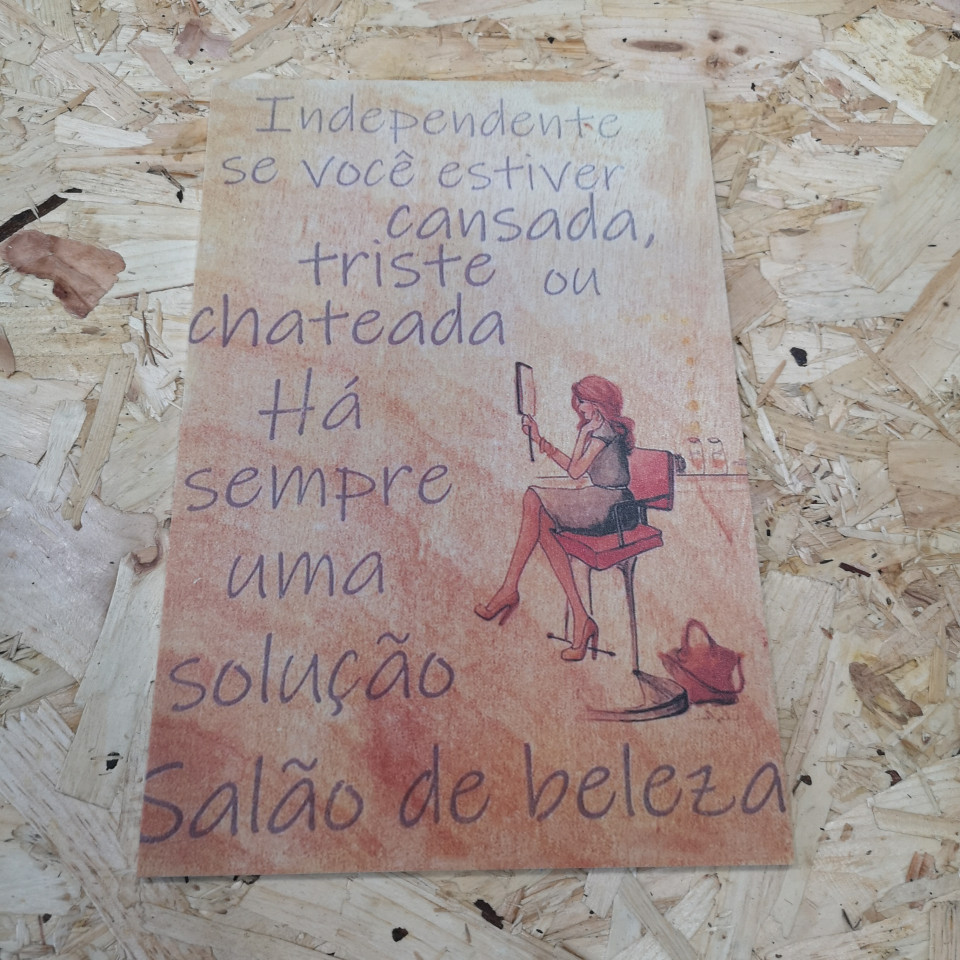 Independente
se você estiver
cansada,
triste ou
chateada
Há
sempre
uma
solução
Salão de beleza